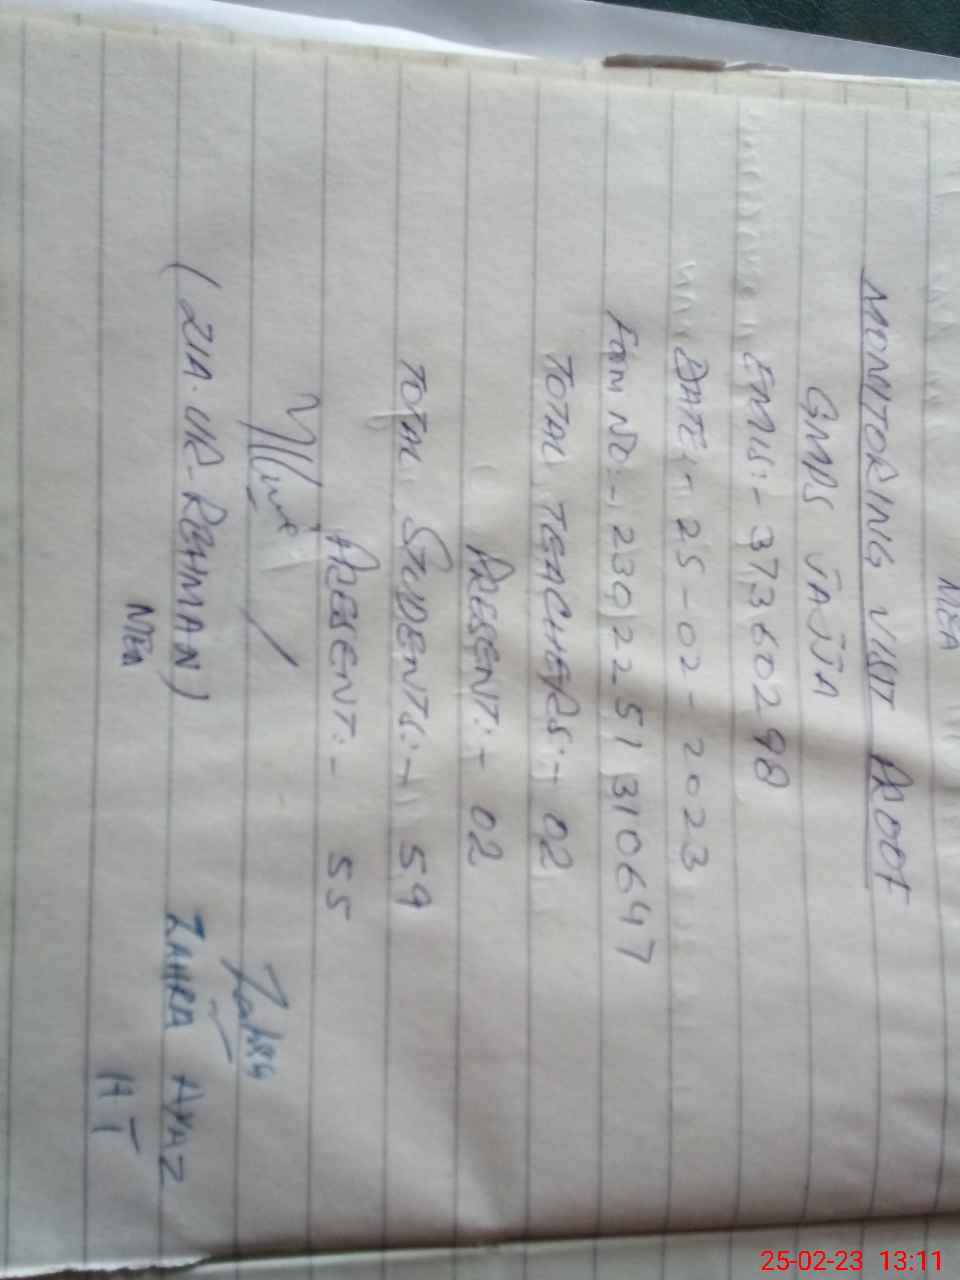 MEA
MONITORING VISIT PROOF
GMPS JAJJA
EMIS:- 37360298
DATE:- 25-02-2023
Form NO:- 23022251310647
TOTAL TEACHERS:- 02
PRESENT:- 02
TOTAL STUDENTS:- 59
PRESENT:- 55
Zahra
(ZIA-UR-REHMAN)
ZAHRA AYAZ
MEA
HT
25-02-23 13:11